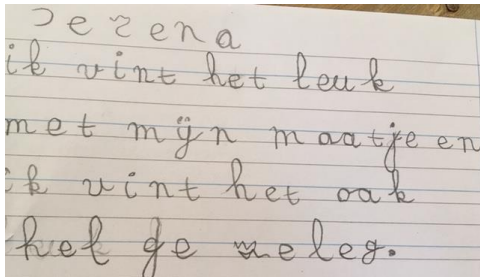 Jezena
ik vint het leuk
met mijn maatje en
ik vint het oak
het ge zeleg.